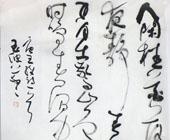 人閒桂花落
夜靜春山空
月出驚山鳥
時鳴春澗中
唐王維詩一首